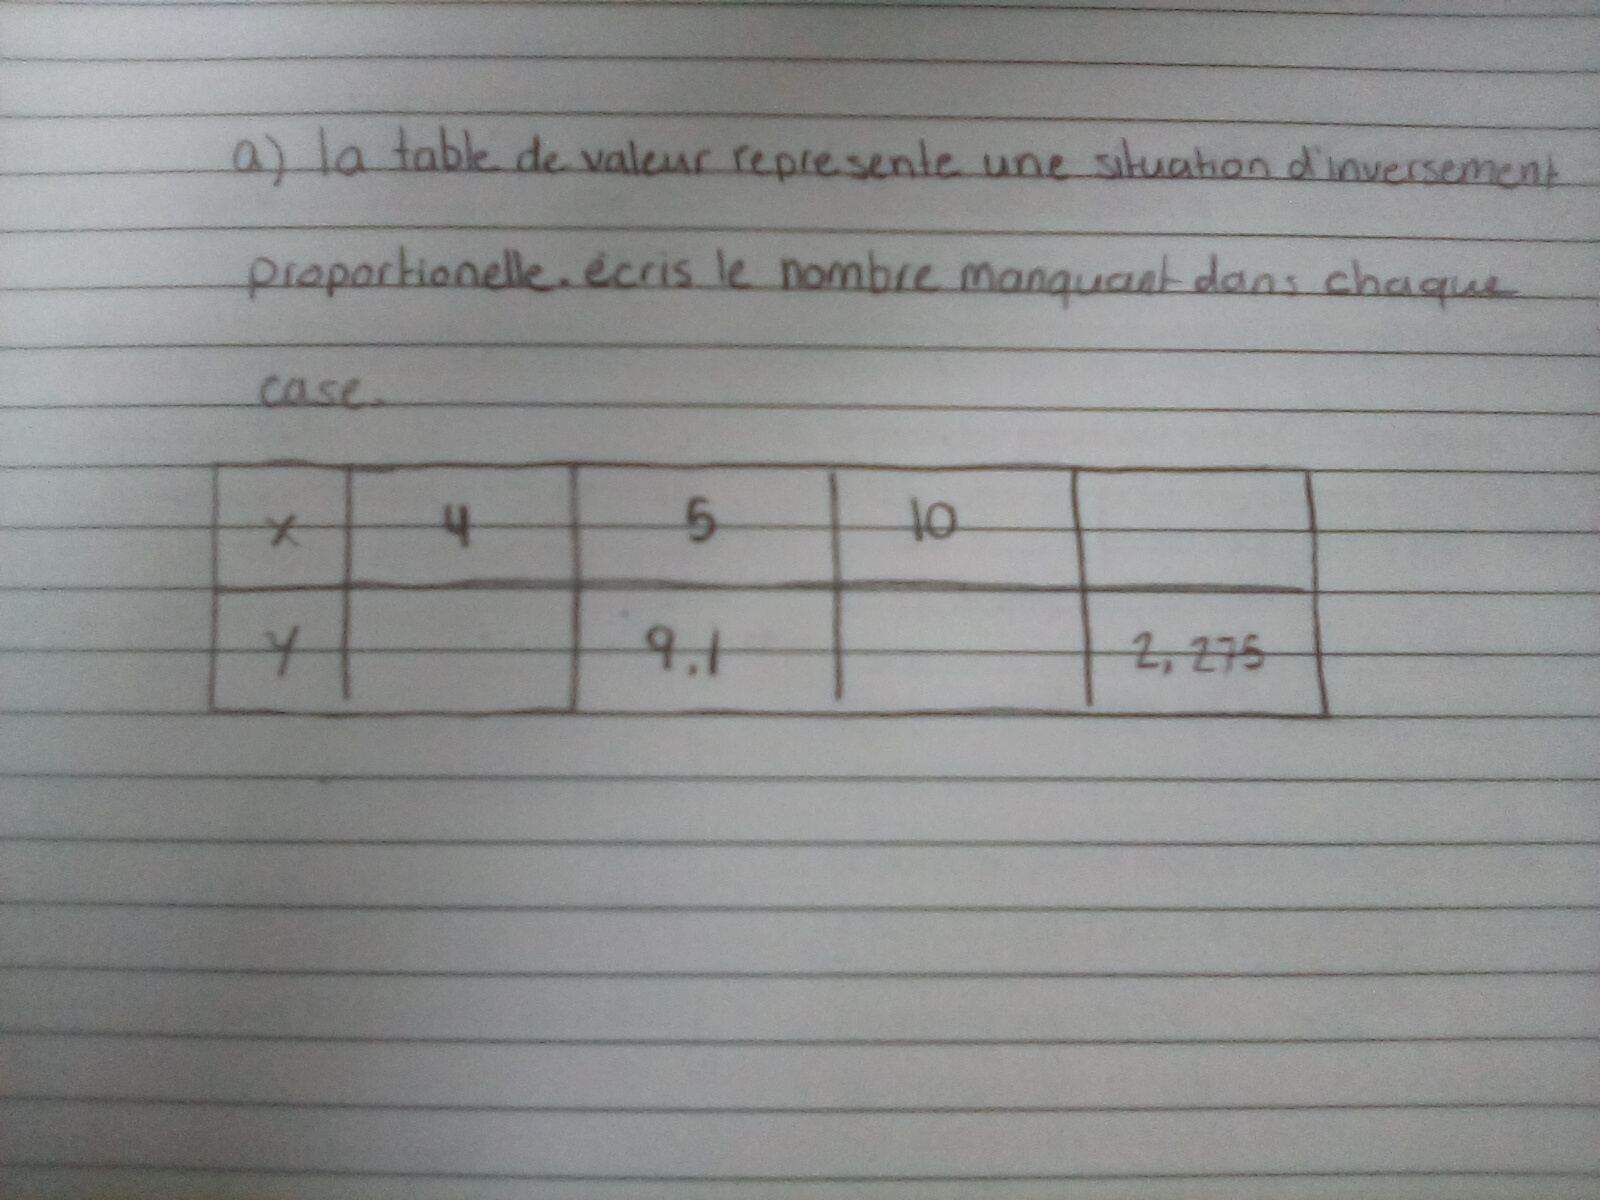 a) la table de valeur represente une situation d'inversement
proportionelle. écris le nombre manquant dans chaque
case.
x 4 5 10
y 9,1 2,275